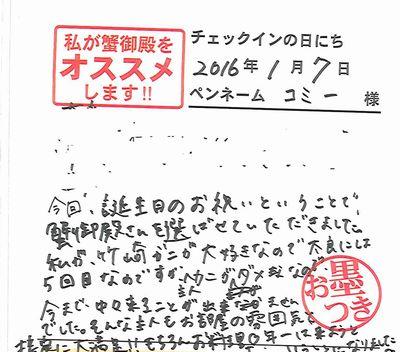 私が蟹御殿を
オススメ
します!!
チェックインの日にち
2016年1月7日
ペンネーム コミー 様
今回、誕生日のお祝いということで
蟹御殿さんを選ばせていただきました
私が、竹崎ガニが大好きなので太良には
5回目なのですが、主人カニがダメなので
今まで、中々来ることが出来ません
でした。そんな主人もお部屋の雰囲気と
接客に大満足!!もちろんお料理
お墨つき